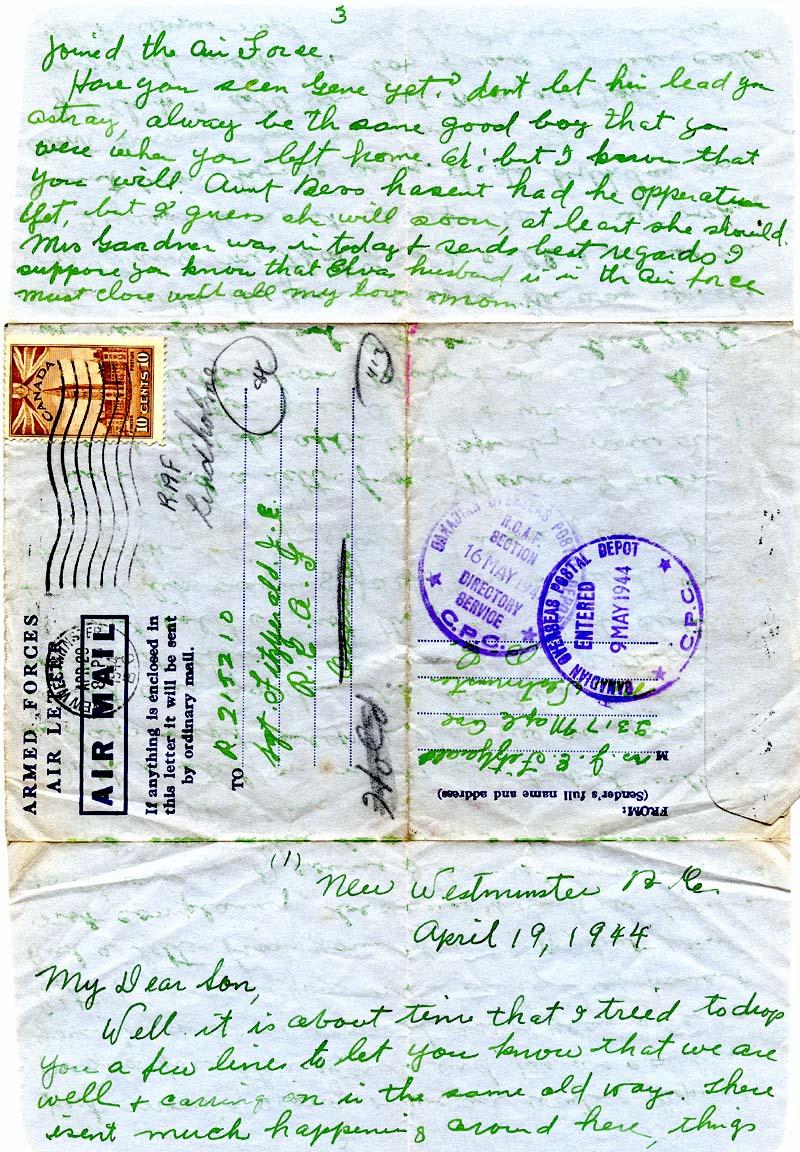 3
Joined the Air Forse.
Have you seen Gene yet? dont let him lead you
astray, alway be th same good boy that you
were when you left home. Eh! but I know that
you will. Aunt hasent had he opperation
yet, but I guess sh will soon, at least she should.
Mrs Gardner was in today & sends best regards I
suppose you know that Elvas husband is in th air force
must close with all my love mom
CANADA
10 CENTS 10
RAF
Lindholme
ARMED FORCES
AIR LETTER
AIR MAIL
If anything is enclosed in
this letter it will be sent
by ordinary mail.
TO R. 215210
Sgt Fitzgerald. J. E.
R. C. A. F
CANADIAN OVERSEAS POSTAL DEPOT
R.C.A.F.
SECTION
16 MAY 194
DIRECTORY
SERVICE
C.P.C.
CANADIAN OVERSEAS POSTAL DEPOT
ENTERED
9 MAY 1944
C.P.C.
FROM:
(Sender's full name and address)
Mrs J. E. Fitzgerald
3317 Maple Ave
Westminster
B. C.
(1)
New Westminster B. C.
April 19, 1944
My Dear Son,
Well it is about time that I treed to drop
you a few lines to let you know that we are
well & carring on in the same old way. There
isent much happening around here, things